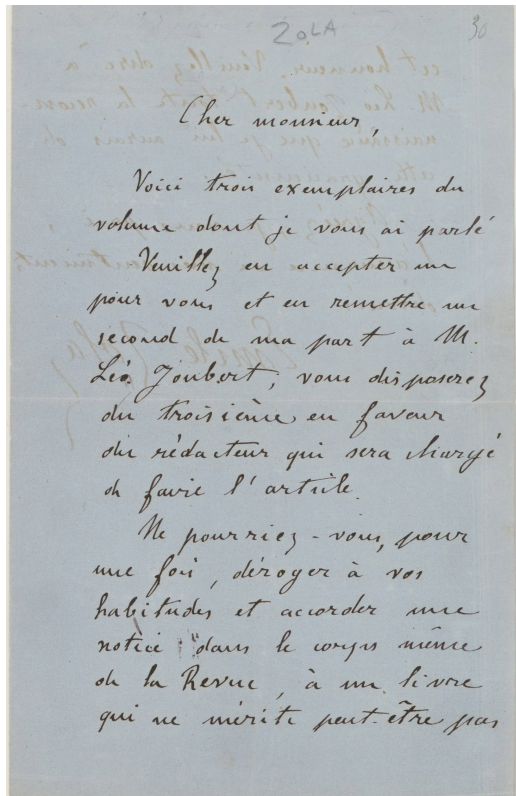 ZOLA
30
Cher monsieur,
Voici trois exemplaires du
volume dont je vous ai parlé
Veuillez en accepter un
pour vous et en remettre un
second de ma part à M.
Léo Joubert; vous disposerez
du troisième en faveur
du rédacteur qui sera chargé
de faire l'article.
Ne pourriez-vous, pour
une fois, déroger à vos
habitudes et accorder une
notice dans le corps même
de la Revue, à un livre
qui ne mérite peut-être pas